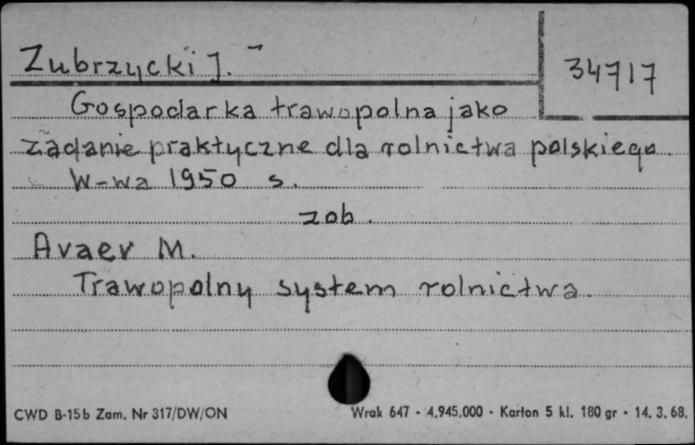 Zubrzycki J. 34717
Gospodarka trawopolna jako
zadanie praktyczne dla rolnictwa polskiego.
W-wa 1950 s.
zob.
Avaev M.
Trawopolny system rolnictwa.
CWD B-15b Zam. Nr 317/DW/ON Wrak 647 - 4.945.000 - Karton 5 kl. 180 gr - 14. 3. 68.